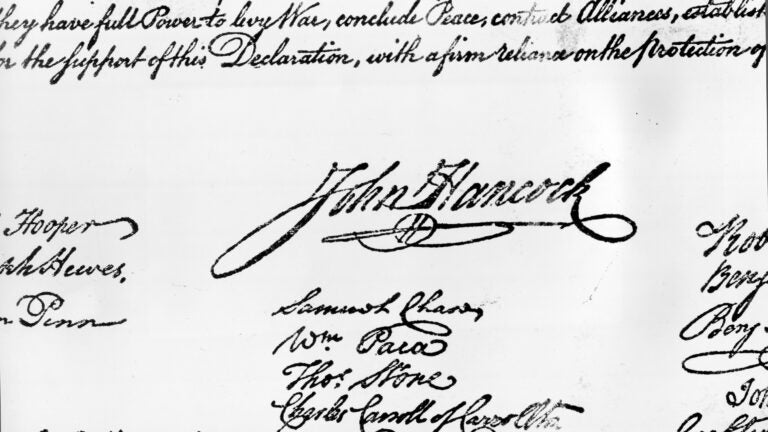 they have full Power to levy War, conclude Peace, contract Alliances, establish
for the support of this Declaration, with a firm reliance on the Protection of
John Hancock
H
Hooper
Hewes,
Penn
Samuel Chase
Wm Paca
Thos Stone
Charles Carroll of Carrollton
Rob
Benj
Benj
Joh